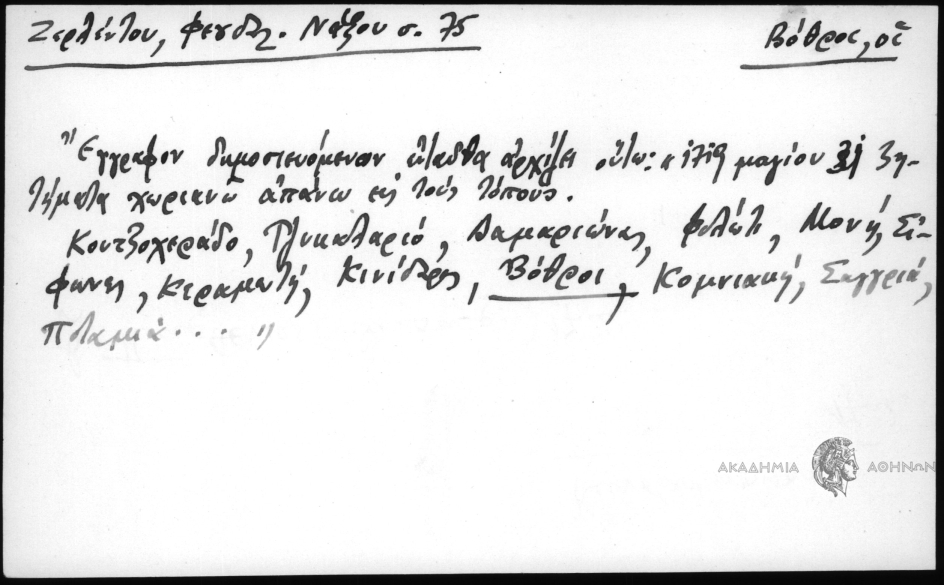 Ζερλέντου, Φεουδ. Νάξου σ. 75
Βόθροι, οἱ
"Ἔγγραφον δημοσιευόμενον ἐνταῦθα ἀρχίζει οὕτω: « 1719 μαγίου 31 Ζη-
τήματα χωριανῶ ἀπάνω εἰς τοὺς τόπους.
Κουτζοχεράδο, Γλυκαταριό, Δαμαριώνας, Φιλώτι, Μονή, Σί-
φωνες, Κεραμωτή, Κινίδαρος, Βόθροι, Κομνιακή, Σαγγριά,
Ποταμιά . . . "
ΑΚΑΔΗΜΙΑ ΑΘΗΝΩΝ